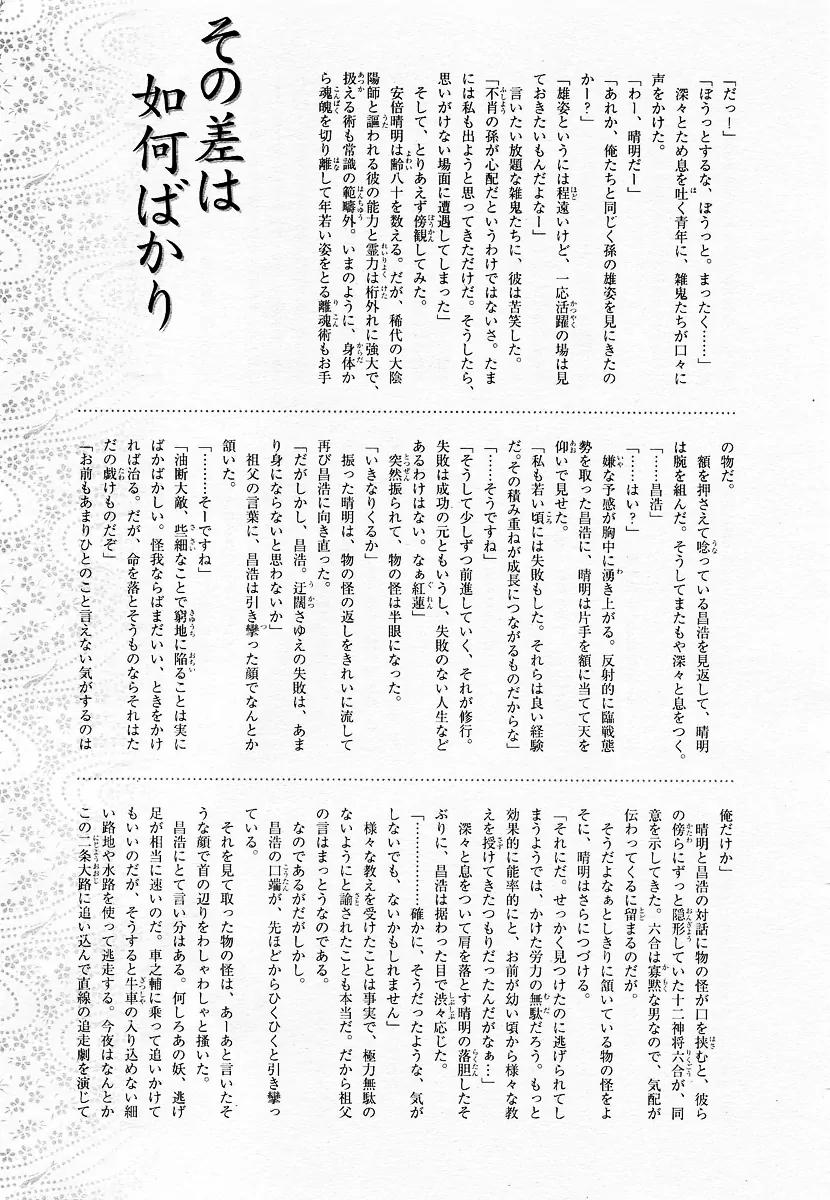 その差は
如何ばかり
「だっ！」
「ぼうっとするな、ぼうっと。まったく……」
深々とため息を吐く青年に、雑鬼たちが口々に
声をかけた。
「わー、晴明だー」
「あれか、俺たちと同じく孫の雄姿を見にきたの
かー？」
「雄姿というには程遠いけど、一応活躍の場は見
ておきたいもんだよなー」
言いたい放題な雑鬼たちに、彼は苦笑した。
「不肖の孫が心配だというわけではないさ。たま
には私も出ようと思ってきただけだ。そうしたら、
思いがけない場面に遭遇してしまった」
そして、とりあえず傍観してみた。
安倍晴明は齢八十を数える。だが、稀代の大陰
陽師と謳われる彼の能力と霊力は桁外れに強大で、
扱える術も常識の範疇外。いまのように、身体か
ら魂魄を切り離して年若い姿をとる離魂術もお手
の物だ。
額を押さえて唸っている昌浩を見返して、晴明
は腕を組んだ。そうしてまたもや深々と息をつく。
「……昌浩」
「……はい？」
嫌な予感が胸中に湧き上がる。反射的に臨戦態
勢を取った昌浩に、晴明は片手を額に当てて天を
仰いで見せた。
「私も若い頃には失敗もした。それらは良い経験
だ。その積み重ねが成長につながるものだからな」
「……そうですね」
「そうして少しずつ前進していく、それが修行。
失敗は成功の元ともいうし、失敗のない人生など
あるわけはない。なぁ紅蓮」
突然振られて、物の怪は半眼になった。
「いきなりくるか」
振った晴明は、物の怪の返しをきれいに流して
再び昌浩に向き直った。
「だがしかし、昌浩。迂闊さゆえの失敗は、あま
り身にならないと思わないか」
祖父の言葉に、昌浩は引き攣った顔でなんとか
頷いた。
「………そーですね」
「油断大敵、些細なことで窮地に陥ることは実に
ばかばかしい。怪我ならばまだいい、ときをかけ
れば治る。だが、命を落とそうものならそれはた
だの戯けものだぞ」
「お前もあまりひとのこと言えない気がするのは
俺だけか」
晴明と昌浩の対話に物の怪が口を挟むと、彼ら
の傍らにずっと隠形していた十二神将六合が、同
意を示してきた。六合は寡黙な男なので、気配が
伝わってくるに留まるのだが。
そうだよなぁとしきりに頷いている物の怪をよ
そに、晴明はさらにつづける。
「それにだ。せっかく見つけたのに逃げられてし
まうようでは、かけた労力の無駄だろう。もっと
効果的に能率的にと、お前が幼い頃から様々な教
えを授けてきたつもりだったんだがなぁ…」
深々と息をついて肩を落とす晴明の落胆したそ
ぶりに、昌浩は据わった目で渋々応じた。
「………………確かに、そうだったような、気が
しないでも、ないかもしれません」
様々な教えを受けたことは事実で、極力無駄の
ないようにと諭されたことも本当だ。だから祖父
の言はまっとうなのである。
なのであるがだがしかし。
昌浩の口端が、先ほどからひくひくと引き攣っ
ている。
それを見て取った物の怪は、あーあと言いたそ
うな顔で首の辺りをわしゃわしゃと掻いた。
昌浩にとて言い分はある。何しろあの妖、逃げ
足が相当に速いのだ。車之輔に乗って追いかけて
もいいのだが、そうすると牛車の入り込めない細
い路地や水路を使って逃走する。今夜はなんとか
この二条大路に追い込んで直線の追走劇を演じて